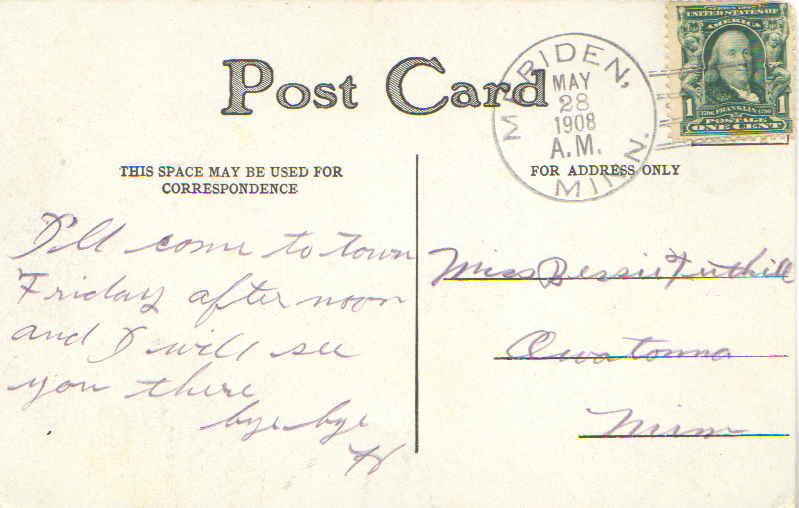 Post Card
MERIDEN, MINN.
MAY
28
1908
A.M.
UNITED STATES OF
AMERICA
1 FRANKLIN 1
POSTAGE
ONE CENT
THIS SPACE MAY BE USED FOR
CORRESPONDENCE
FOR ADDRESS ONLY
I'll come to town
Friday after noon
and I will see
you there
bye bye
H
Miss Bessie Tuthill
Owatonna
Minn